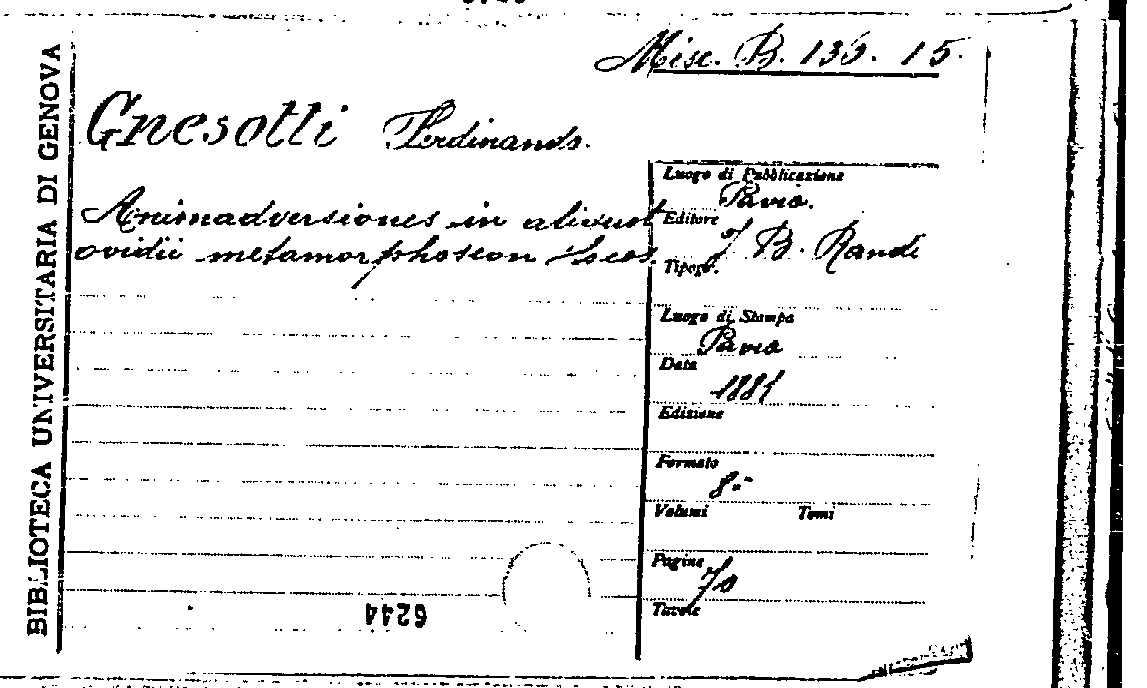 Misc. B. 136. 15.
BIBLIOTECA UNIVERSITARIA DI GENOVA
Gnesotti Ferdinando.
Animadversiones in aliquot
ovidii metamorphoseon locos.
Luogo di Pubblicazione
Pavia.
Editore
J B. Randi
Tipogr.
Luogo di Stampa
Pavia
Data
1881
Edizione
Formato
8.º
Volumi Tomi
Pagine
70
Tavole
6244